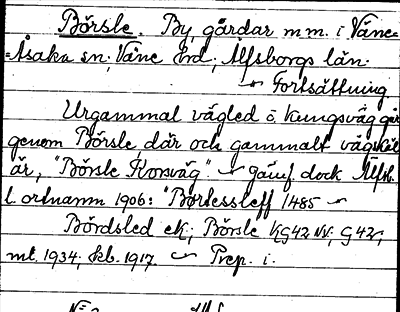 Börsle. By, gårdar m.m. i Väne=
=Åsaka sn; Väne hrd; Älfsborgs län.
Fortsättning
Urgammal vägled o kungsväg går
genom Börsle där och gammalt vägskäl
är, "Börsle Korsväg" jämf dock Älfsb.
l ortnamn 1906: "Börlessleff 1485
Bördsled ek; Börsle KG42 NV; G42;
mt. 1934; kb. 1917. Prep. i.